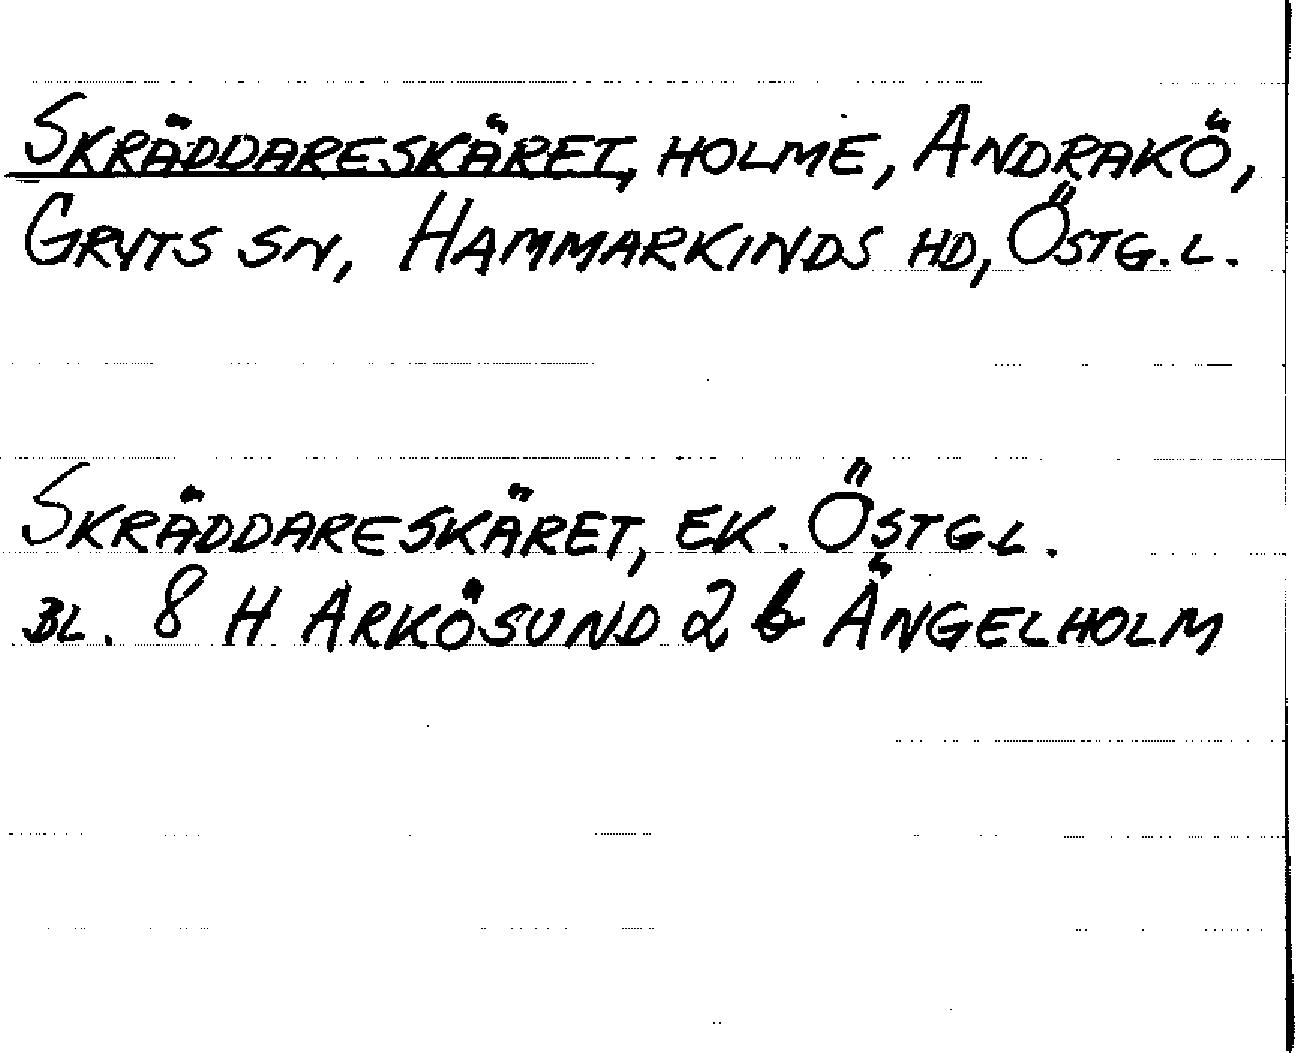 SKRÄDDARESKÄRET, HOLME, ANDRAKÖ,
GRYTS SN, HAMMARKINDS HD, ÖSTG. L.
SKRÄDDARESKÄRET, EK. ÖSTG L.
BL. 8 H ARKÖSUND 2 b ÄNGELHOLM